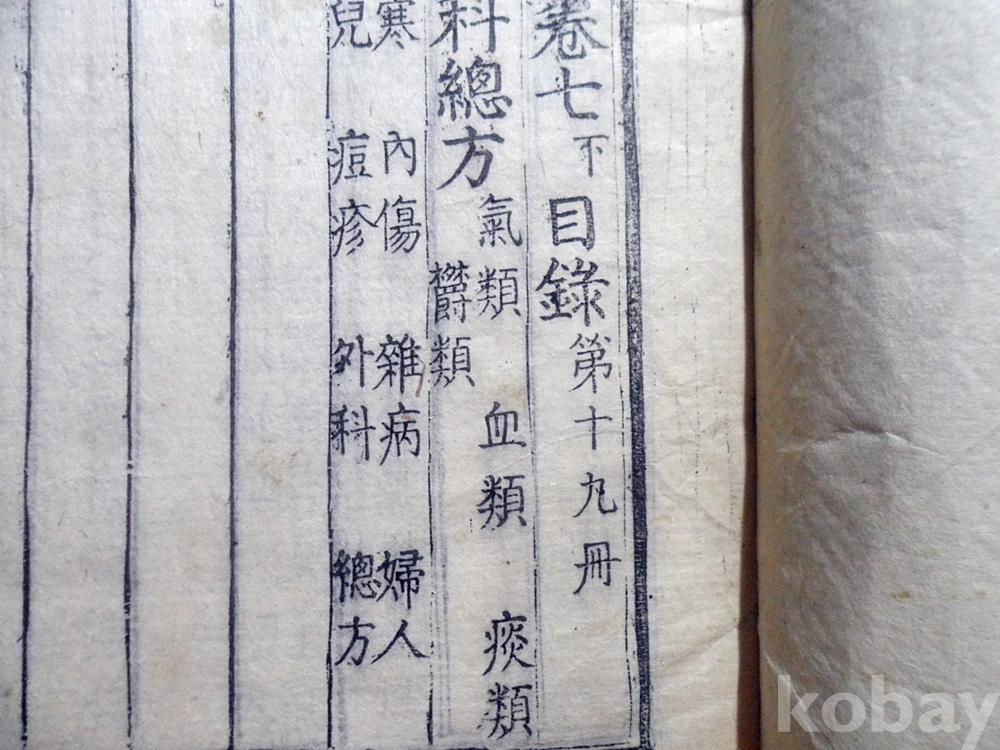 卷七下目錄第十九冊
科總方氣類 血類 痰類
欝類
寒 內傷 雜病 婦人
兒 痘疹 外科 總方
kobay